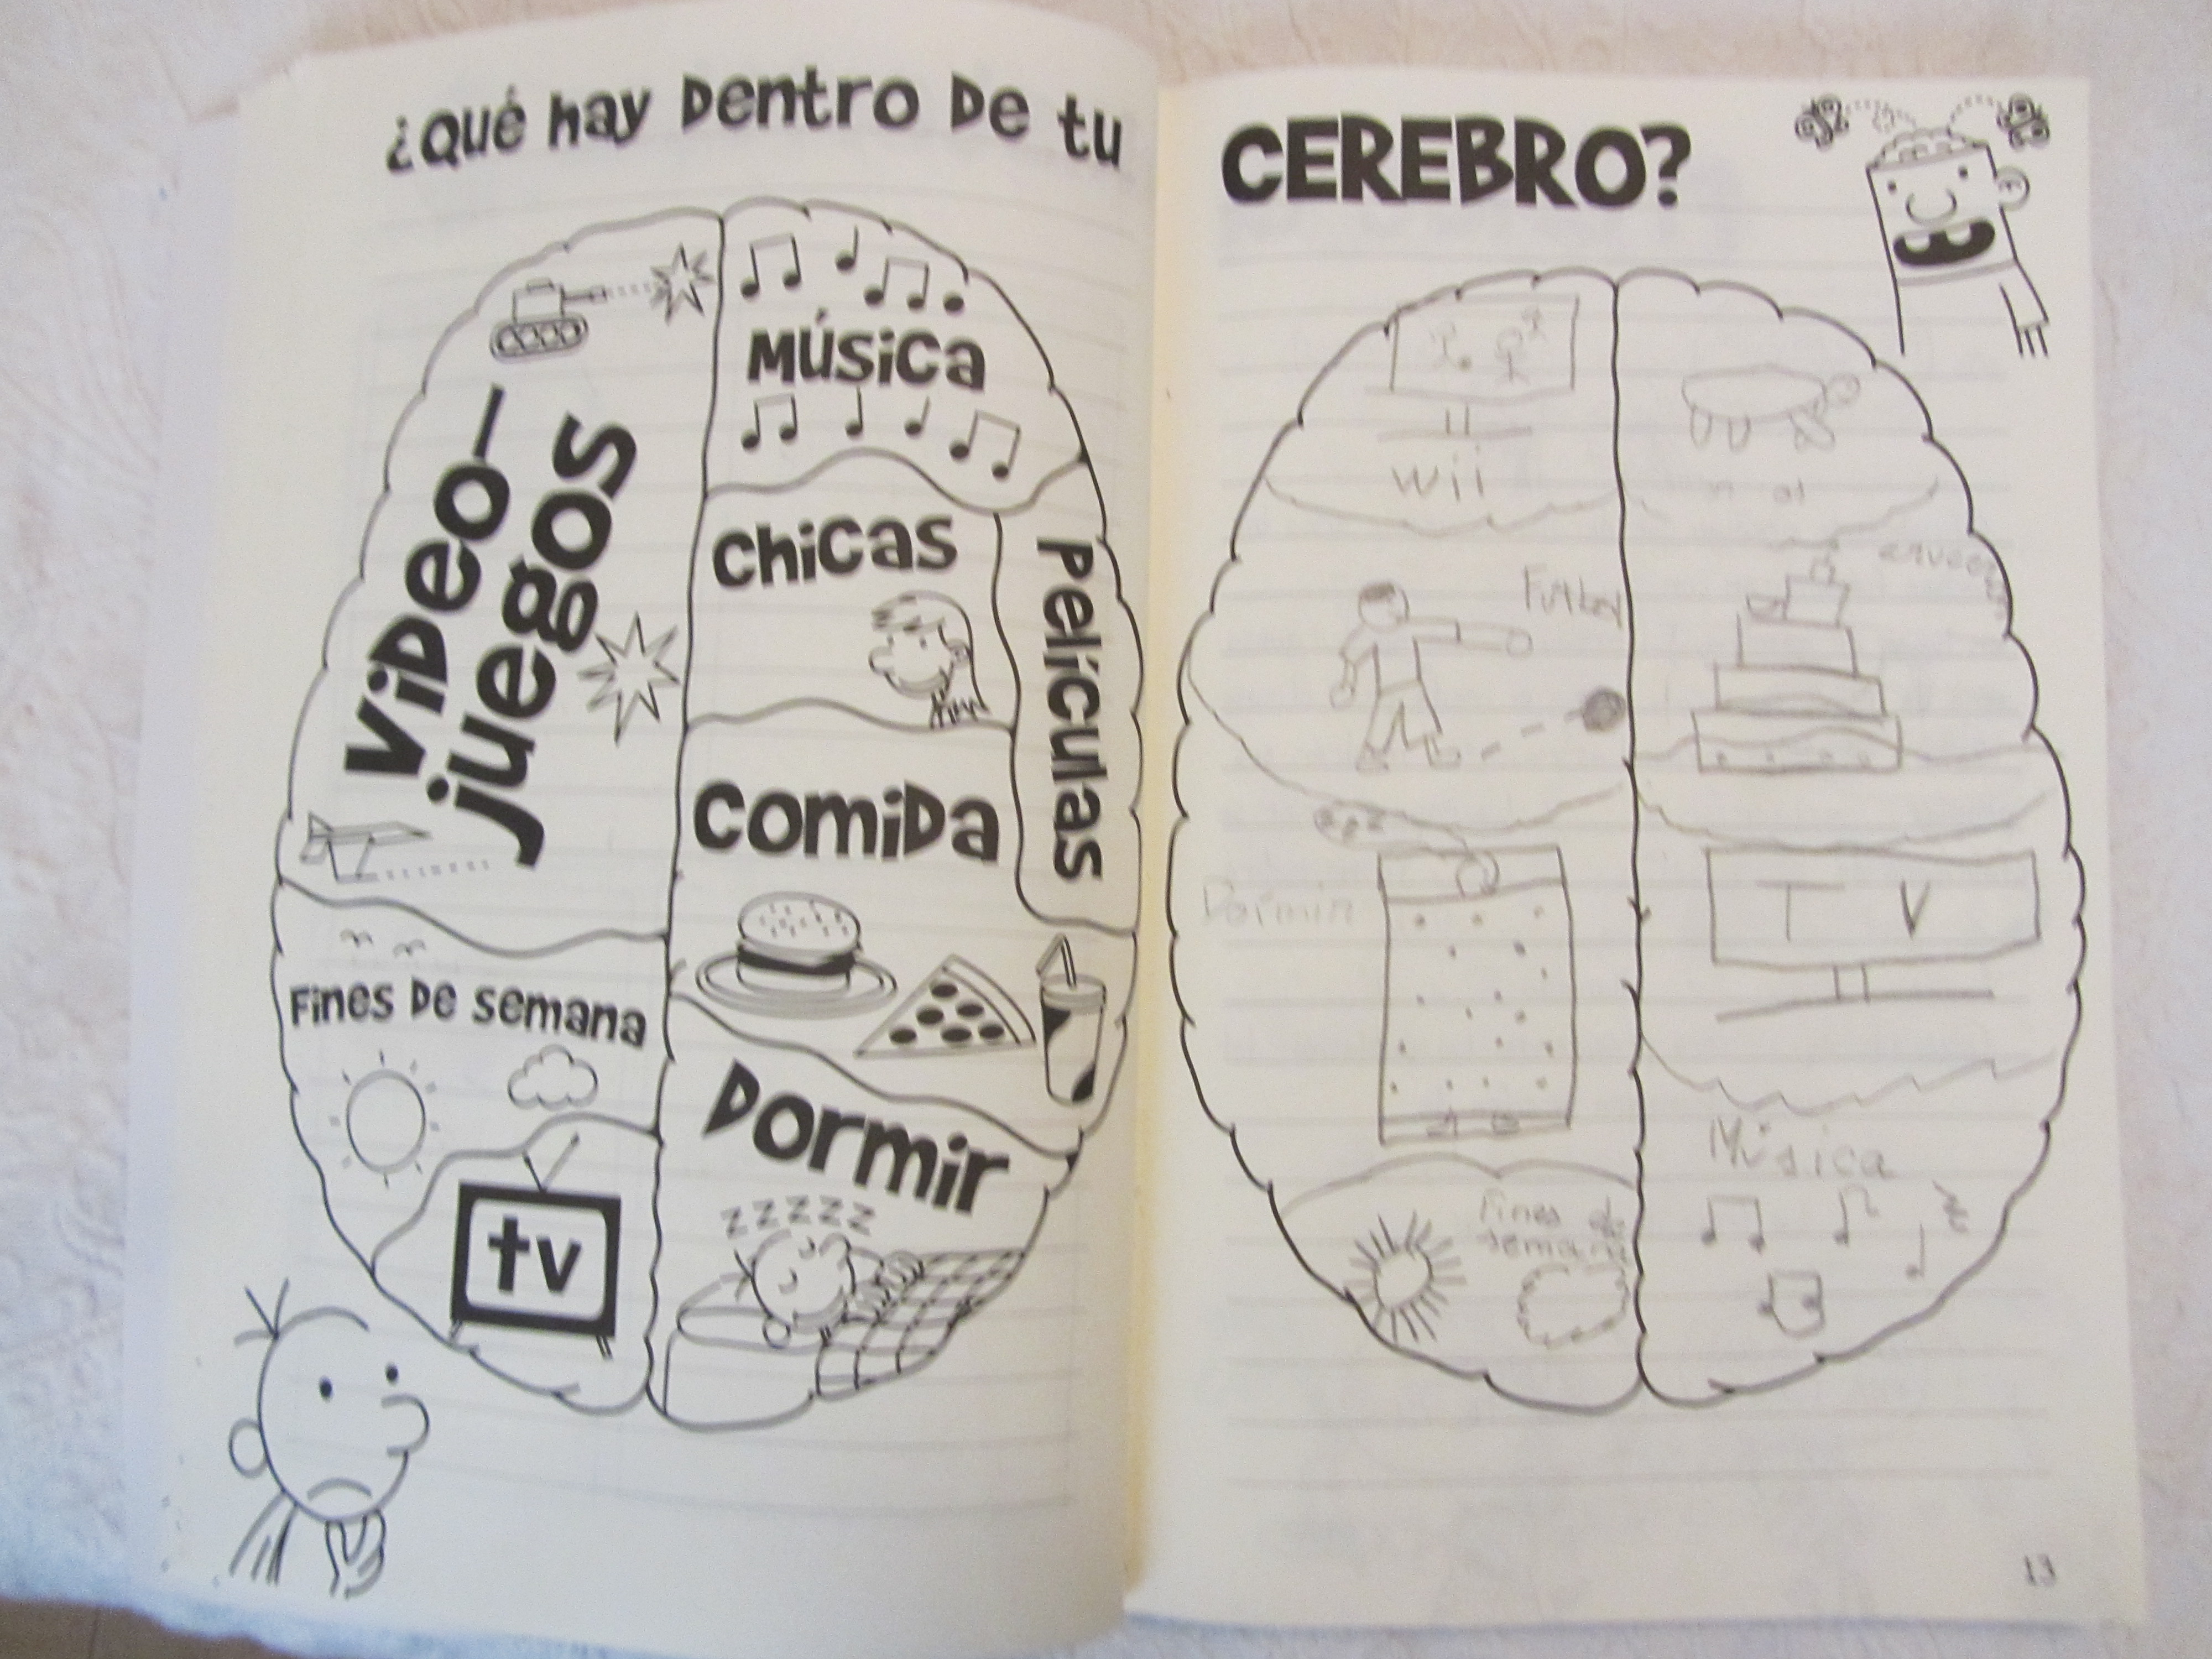 ¿Qué hay dentro de tu
Música
Video-
juegos
Chicas
Películas
Comida
Fines de semana
Dormir
zzzzz
tv
CEREBRO?
wii
Dormir
T V
Música
Fines de
semana
13